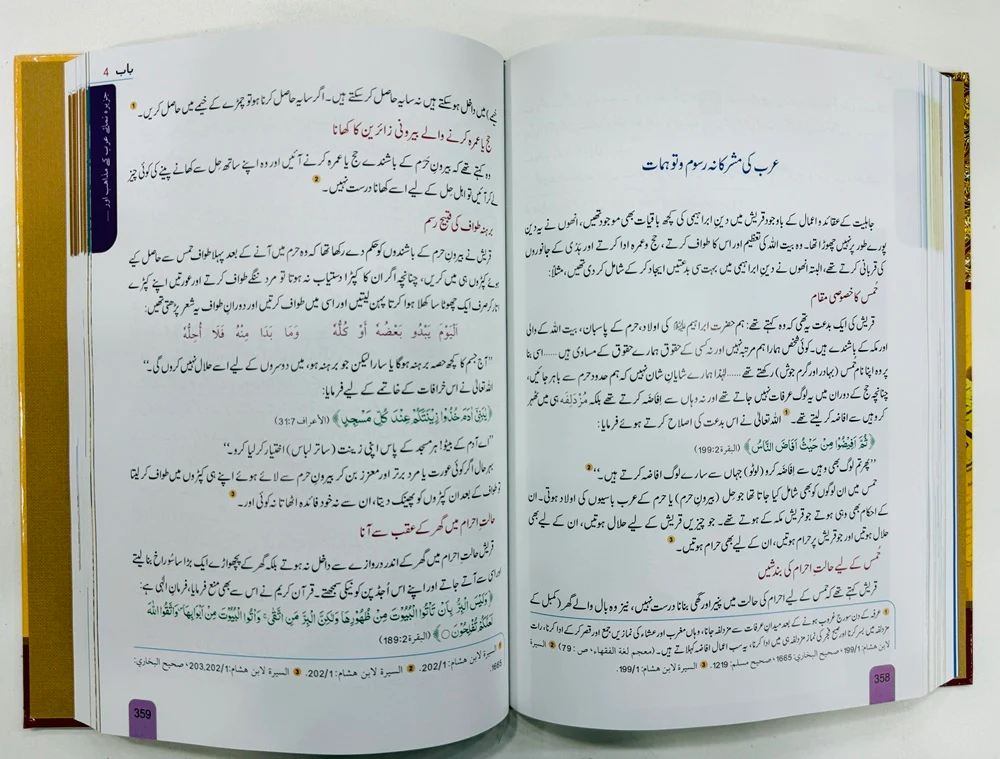 عرب کی مشرکانہ رسوم و توہمات
جاہلیت کے عقائد و اعمال کے باوجود قریش میں دینِ ابراہیمی کی کچھ باقیات بھی موجود تھیں، انھوں نے یہ دین
پورے طور پر نہیں چھوڑا تھا۔ وہ بیت اللہ کی تعظیم اور اس کا طواف کرتے، حج و عمرہ ادا کرتے اور ہدی کے جانوروں
کی قربانی کرتے تھے، البتہ انھوں نے دینِ ابراہیمی میں بہت سی بدعتیں ایجاد کر کے شامل کر دی تھیں، مثلاً:
حُمس کا خصوصی مقام
قریش کی ایک بدعت یہ تھی کہ وہ کہتے تھے: ہم حضرت ابراہیم علیہ السلام کی اولاد، حرم کے پاسبان، بیت اللہ کے والی
اور مکہ کے باشندے ہیں۔ کوئی شخص ہمارا ہم مرتبہ نہیں اور نہ کسی کے حقوق ہمارے حقوق کے مساوی ہیں ...... اسی بنا
پر وہ اپنا نام حُمس (بہادر اور گرم جوش) رکھتے تھے ...... لہٰذا ہمارے شایانِ شان نہیں کہ ہم حدودِ حرم سے باہر جائیں،
چنانچہ حج کے دوران میں یہ لوگ عرفات نہیں جاتے تھے اور نہ وہاں سے افاضہ کرتے تھے بلکہ مُزدلفہ ہی میں ٹھہر
کر وہیں سے افاضہ کر لیتے تھے۔ 1 اللہ تعالیٰ نے اس بدعت کی اصلاح کرتے ہوئے فرمایا:
﴿ثُمَّ اَفِيْضُوْا مِنْ حَيْثُ اَفَاضَ النَّاسُ﴾ (البقرة 199:2)
”پھر تم لوگ بھی وہیں سے افاضہ کرو (لوٹو) جہاں سے سارے لوگ افاضہ کرتے ہیں۔“ 2
حمس میں ان لوگوں کو بھی شامل کیا جاتا تھا جو حِل (بیرونِ حرم) یا حرم کے عرب باسیوں کی اولاد ہوتی۔ ان
کے احکام بھی وہی ہوتے جو قریشِ مکہ کے ہوتے تھے۔ جو چیزیں قریش کے لیے حلال ہوتیں، ان کے لیے بھی
حلال ہوتیں اور جو قریش پر حرام ہوتیں، ان کے لیے بھی حرام ہوتیں۔ 3
حُمس کے لیے حالتِ احرام کی بندشیں
قریش کہتے تھے کہ حُمس کے لیے احرام کی حالت میں پنیر اور گھی بنانا درست نہیں، نیز وہ بال والے گھر (کمبل کے
1 عرفہ کے دن سورج غروب ہونے کے بعد میدانِ عرفات سے مزدلفہ جانا، وہاں مغرب اور عشاء کی نمازیں جمع اور قصر کر کے ادا کرنا، رات
مزدلفہ میں بسر کرنا اور صبح فجر کی نماز مزدلفہ ہی میں ادا کرنا، یہ سب اعمال افاضہ کہلاتے ہیں۔ (معجم لغة الفقهاء، ص : 79) 2 السيرة
لابن هشام: 199/1، صحيح البخاري: 1665، صحيح مسلم: 1219. 3 السيرة لابن هشام: 199/1.
358
باب 4
جزیرہ نمائے عرب کے مذاہب اور ....
خیمے) میں داخل ہو سکتے ہیں نہ سایہ حاصل کر سکتے ہیں۔ اگر سایہ حاصل کرنا ہو تو چمڑے کے خیمے میں حاصل کریں۔ 1
حج یا عمرہ کرنے والے بیرونی زائرین کا کھانا
وہ کہتے تھے کہ بیرونِ حَرَم کے باشندے حج یا عمرہ کرنے آئیں اور وہ اپنے ساتھ حل سے کھانے پینے کی کوئی چیز
لے کر آئیں تو اہلِ حِل کے لیے اسے کھانا درست نہیں۔ 2
برہنہ طواف کی قبیح رسم
قریش نے بیرونِ حرم کے باشندوں کو حکم دے رکھا تھا کہ وہ حرم میں آنے کے بعد پہلا طواف حُمس سے حاصل کیے
ہوئے کپڑوں ہی میں کریں، چنانچہ اگر ان کا کپڑا دستیاب نہ ہوتا تو مرد ننگے طواف کرتے اور عورتیں اپنے کپڑے
اتار کر صرف ایک چھوٹا سا کھلا ہوا کرتا پہن لیتیں اور اسی میں طواف کرتیں اور دورانِ طواف یہ شعر پڑھتی تھیں:
اَلْيَوْمَ يَبْدُو بَعْضُهُ أَوْ كُلُّهُ وَمَا بَدَا مِنْهُ فَلَا أُحِلُّهُ
”آج جسم کا کچھ حصہ برہنہ ہوگا یا سارا لیکن جو برہنہ ہو، میں دوسروں کے لیے اسے حلال نہیں کروں گی۔“
اللہ تعالیٰ نے اس خرافات کے خاتمے کے لیے فرمایا:
﴿يٰبَنِيْٓ اٰدَمَ خُذُوْا زِيْنَتَكُمْ عِنْدَ كُلِّ مَسْجِدٍ﴾ (الأعراف 31:7)
”اے آدم کے بیٹو! ہر مسجد کے پاس اپنی زینت (ساتر لباس) اختیار کر لیا کرو۔“
بہرحال اگر کوئی عورت یا مرد برتر اور معزز بن کر بیرونِ حرم سے لائے ہوئے اپنے ہی کپڑوں میں طواف کر لیتا
تو طواف کے بعد ان کپڑوں کو پھینک دیتا، ان سے نہ خود فائدہ اٹھاتا نہ کوئی اور۔ 3
حالتِ احرام میں گھر کے عقب سے آنا
قریش حالتِ احرام میں گھر کے اندر دروازے سے داخل نہ ہوتے بلکہ گھر کے پچھواڑے ایک بڑا سا سُوراخ بنا لیتے
اور اسی سے آتے جاتے اور اپنے اس اُجڈ پن کو نیکی سمجھتے۔ قرآنِ کریم نے اس سے بھی منع فرمایا، فرمانِ الٰہی ہے:
﴿وَلَيْسَ الْبِرُّ بِاَنْ تَاْتُوا الْبُيُوْتَ مِنْ ظُهُوْرِهَا وَلٰكِنَّ الْبِرَّ مَنِ اتَّقٰى ۚ وَاْتُوا الْبُيُوْتَ مِنْ اَبْوَابِهَا ۠ وَاتَّقُوا اللّٰهَ
لَعَلَّكُمْ تُفْلِحُوْنَ﴾ (البقرة 189:2)
1 السيرة لابن هشام: 202/1. 2 السيرة لابن هشام: 202/1. 3 السيرة لابن هشام: 203,202/1، صحيح البخاري:
1665.
359